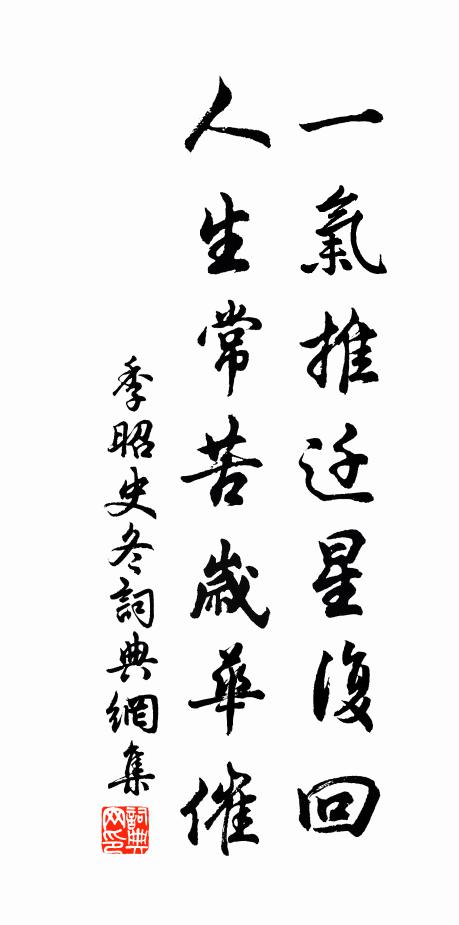 一氣推迁星復回
人生常苦歲華催
季昭史冬詞典網集
詞典网印